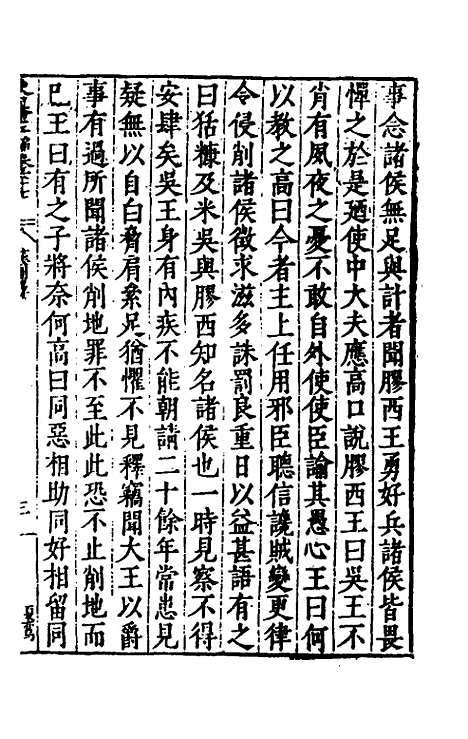 事念諸侯無足與計者聞膠西王勇好兵諸侯皆畏
憚之於是廼使中大夫應高口說膠西王曰吳王不
肖有夙夜之憂不敢自外使使臣諭其愚心王曰何
以教之高曰今者主上任用邪臣聽信讒賊變更律
令侵削諸侯徵求滋多誅罰良重日以益甚語有之
曰狧糠及米吳與膠西知名諸侯也一時見察不得
安肆矣吳王身有內疾不能朝請二十餘年常患見
疑無以自白脅肩絫足猶懼不見釋竊聞大王以爵
事有過所聞諸侯削地罪不至此此恐不止削地而
已王曰有之子將奈何高曰同惡相助同好相留同
三